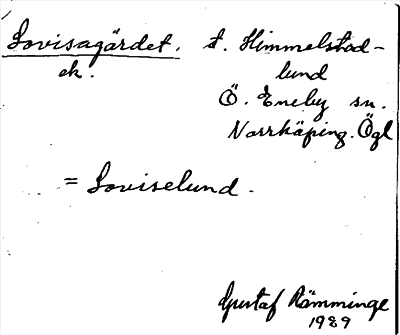 Lovisagärdet. t. Himmelstad-
ek. lund
Ö. Eneby sn.
Norrköping. Ögl
= Loviselund.
Gustaf Rämminge
1989